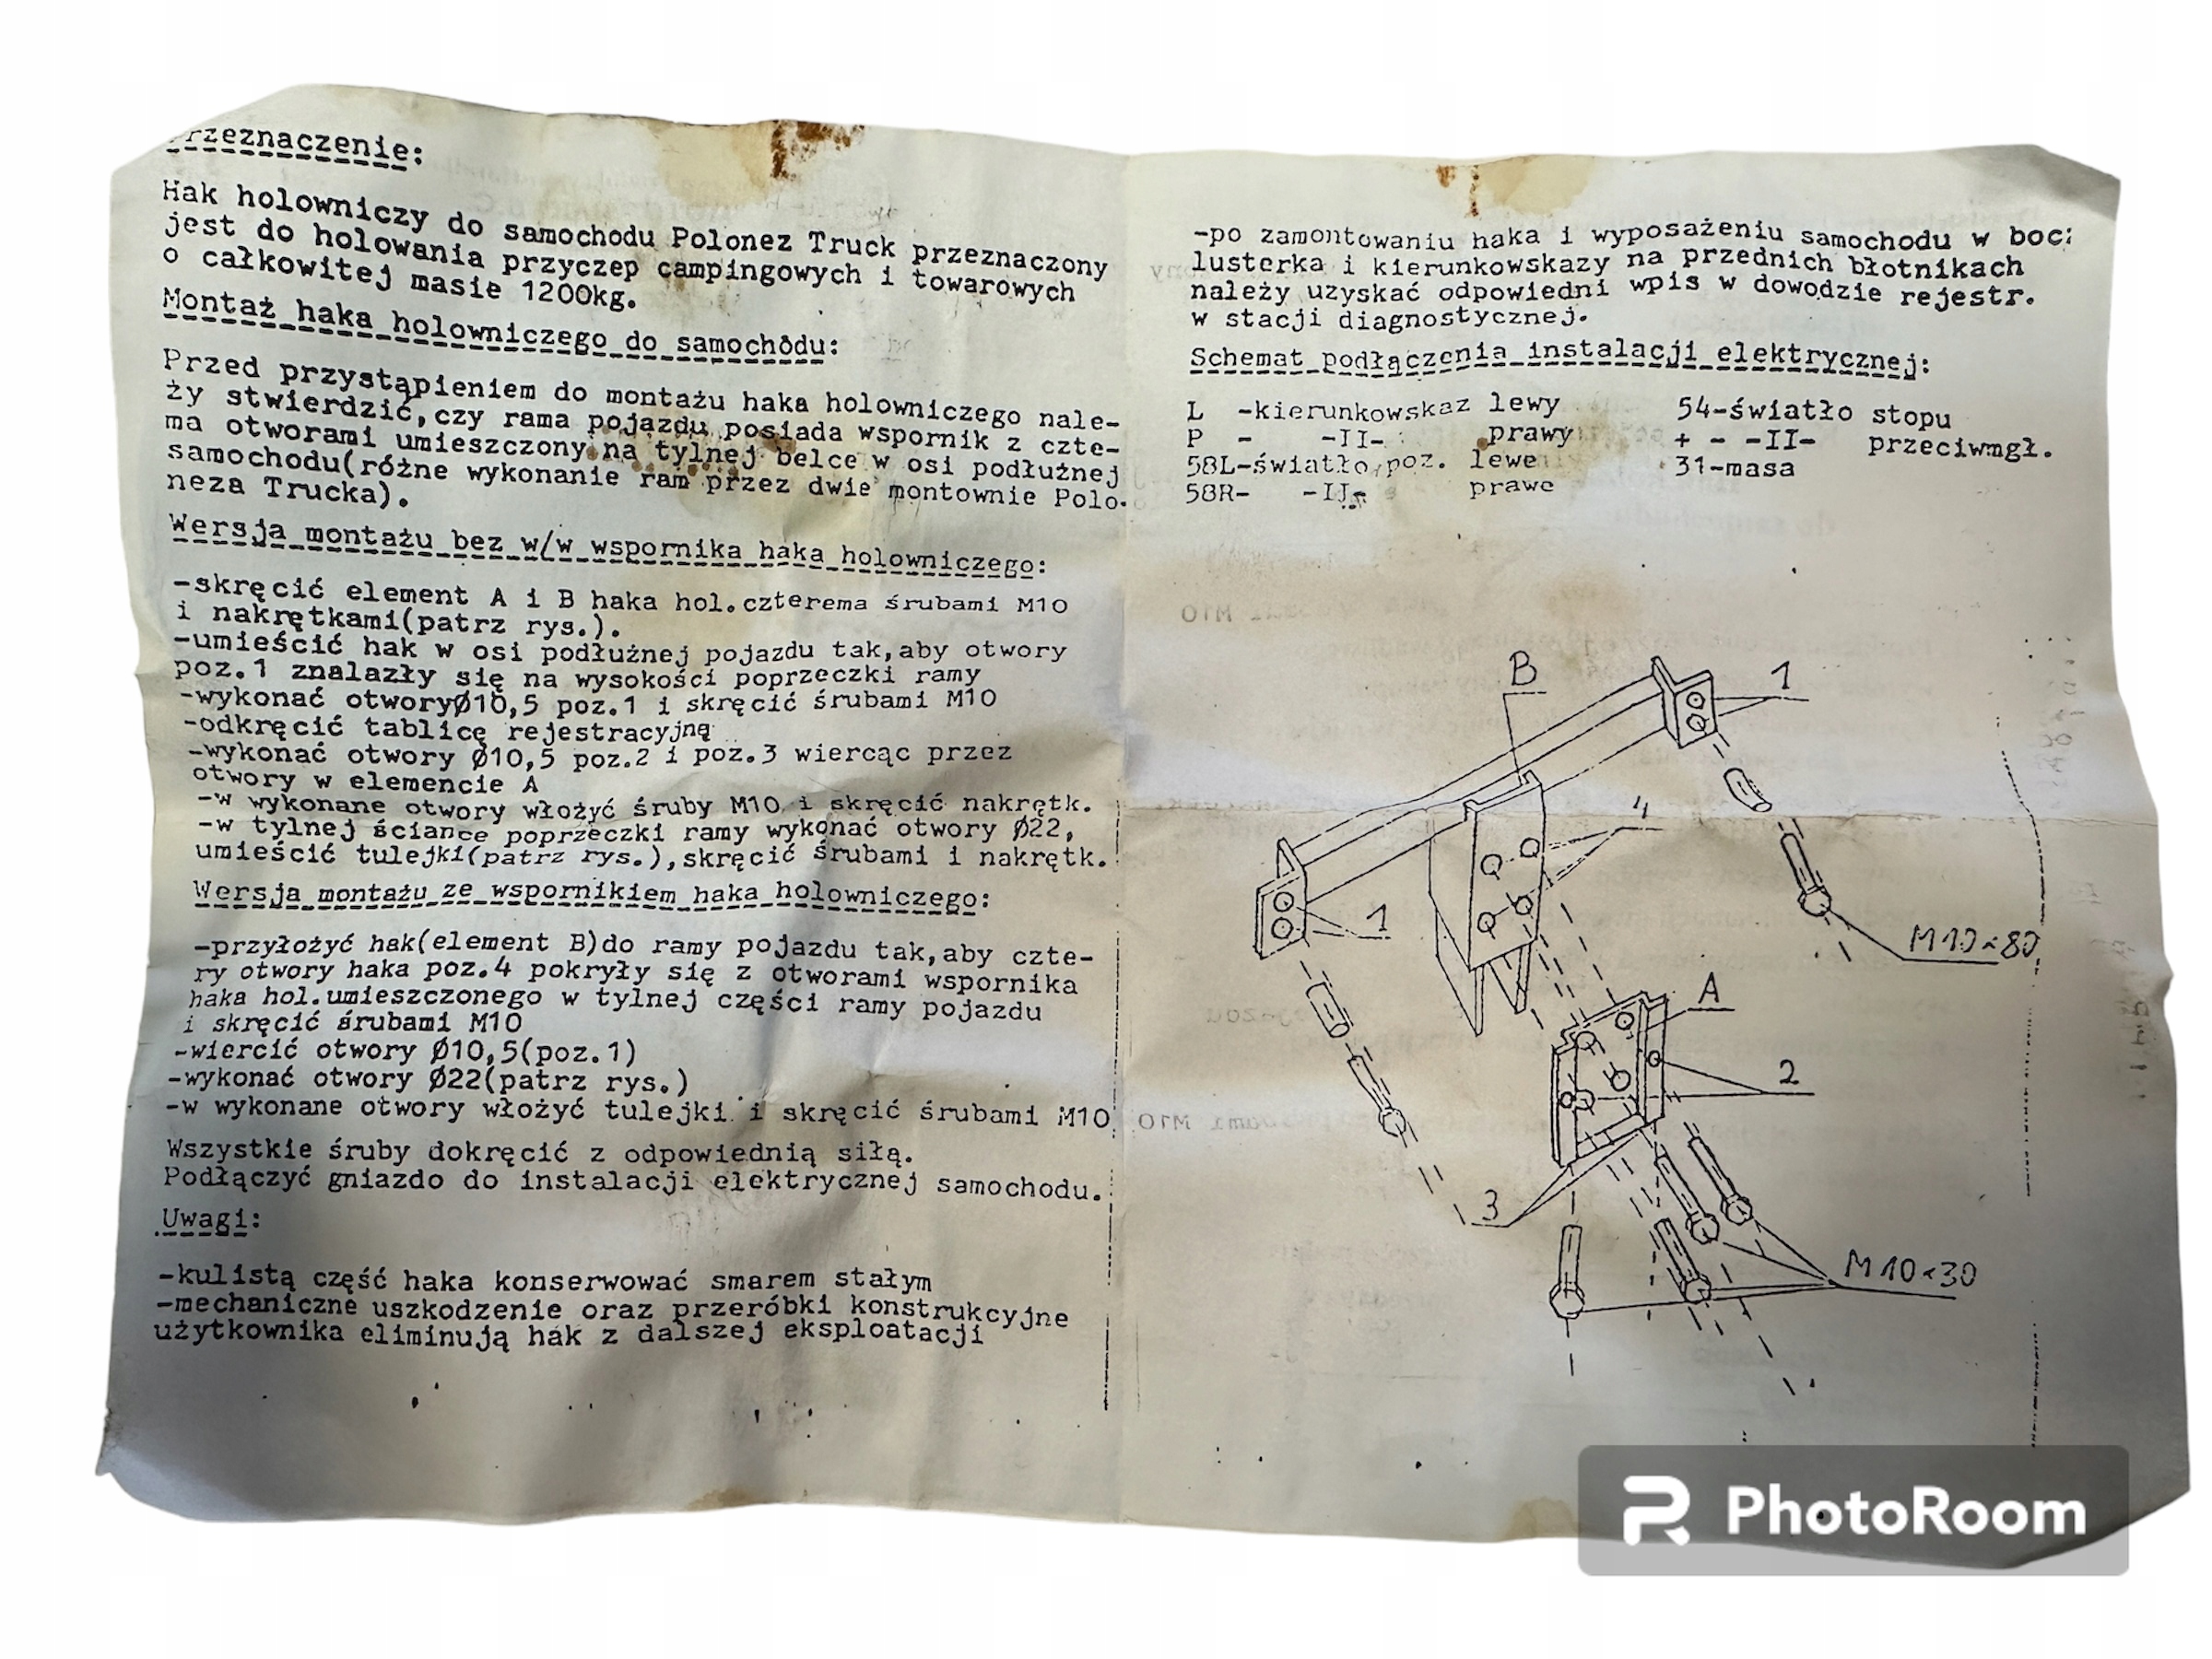 rzeznaczenie:
Hak holowniczy do samochodu Polonez Truck przeznaczony
jest do holowania przyczep campingowych i towarowych
o całkowitej masie 1200kg.
Montaż haka holowniczego do samochodu:
Przed przystąpieniem do montażu haka holowniczego nale-
ży stwierdzić,czy rama pojazdu posiada wspornik z czte-
ma otworami umieszczony na tylnej belce w osi podłużnej
samochodu(różne wykonanie ram przez dwie montownie Polo-
neza Trucka).
Wersja montażu bez w/w wspornika haka holowniczego:
-skręcić element A i B haka hol.czterema śrubami M10
i nakrętkami(patrz rys.).
-umieścić hak w osi podłużnej pojazdu tak,aby otwory
poz.1 znalazły się na wysokości poprzeczki ramy
-wykonać otworyØ10,5 poz.1 i skręcić śrubami M10
-odkręcić tablicę rejestracyjną
-wykonać otwory Ø10,5 poz.2 i poz.3 wiercąc przez
otwory w elemencie A
-w wykonane otwory włożyć śruby M10 i skręcić nakrętk.
-w tylnej ściance poprzeczki ramy wykonać otwory Ø22,
umieścić tulejki(patrz rys.),skręcić śrubami i nakrętk.
Wersja montażu ze wspornikiem haka holowniczego:
-przyłożyć hak(element B)do ramy pojazdu tak,aby czte-
ry otwory haka poz.4 pokryły się z otworami wspornika
haka hol.umieszczonego w tylnej części ramy pojazdu
i skręcić śrubami M10
-wiercić otwory Ø10,5(poz.1)
-wykonać otwory Ø22(patrz rys.)
-w wykonane otwory włożyć tulejki i skręcić śrubami M10
Wszystkie śruby dokręcić z odpowiednią siłą.
Podłączyć gniazdo do instalacji elektrycznej samochodu.
Uwagi:
-kulistą część haka konserwować smarem stałym
-mechaniczne uszkodzenie oraz przeróbki konstrukcyjne
użytkownika eliminują hak z dalszej eksploatacji
-po zamontowaniu haka i wyposażeniu samochodu w boc
lusterka i kierunkowskazy na przednich błotnikach
należy uzyskać odpowiedni wpis w dowodzie rejestr.
w stacji diagnostycznej.
Schemat podłączenia instalacji elektrycznej:
L -kierunkowskaz lewy 54-światło stopu
P - -II- prawy + - -II- przeciwmgł.
58L-światło poz. lewe 31-masa
58R- -II- prawe
B
1
4
1
M10×80
A
2
3
M10×30
PhotoRoom